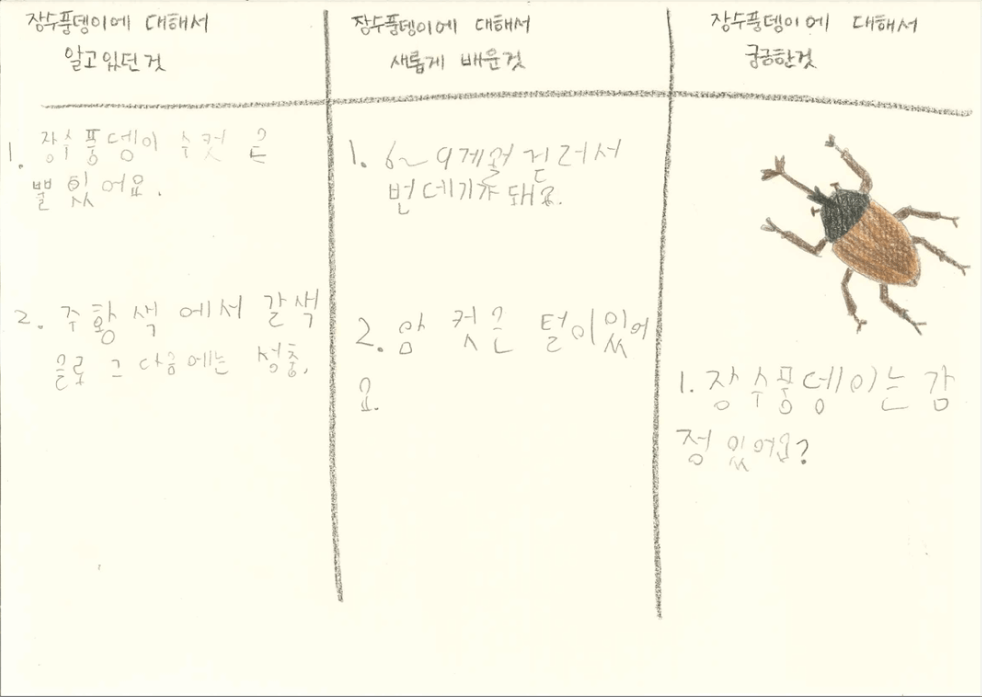 장수풍뎅이에 대해서
알고있던것
1. 장수풍뎅이 수컷 은
뿔 있어요.
2. 주황색 에서 갈색
글로 그 다음에는 성충.
장수풍뎅이에 대해서
새롭게 배운것
1. 6~9개월 걸러서
번데기가 돼요.
2. 암 컷은 털이있어
요.
장수풍뎅이에 대해서
궁금한것
1. 장수풍뎅이는 감
정 있어요?